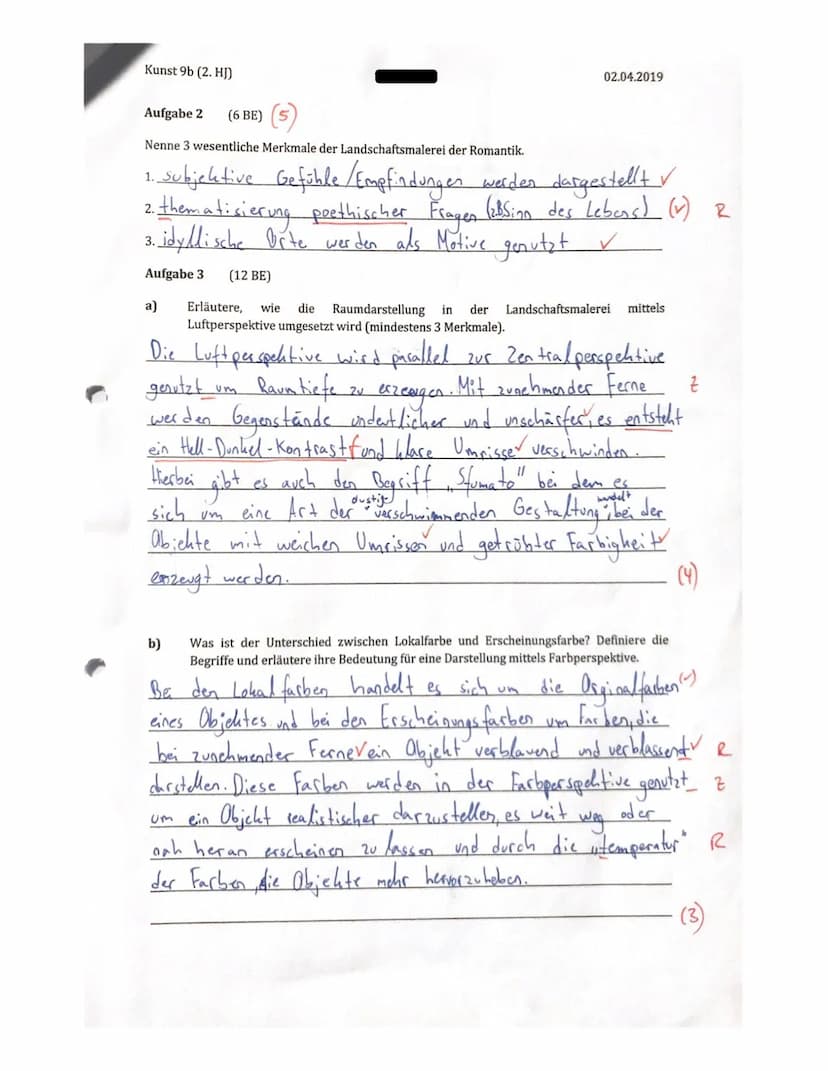 Kunst 9b (2. HJ) 02.04.2019
Aufgabe 2 (6 BE) (5)
Nenne 3 wesentliche Merkmale der Landschaftsmalerei der Romantik.
1. subjektive Gefühle/Empfindungen werden dargestellt ✓
2. thematisierung poethischer Fragen (zB Sinn des Lebens) (✓) R
3. idyllische Orte werden als Motive genutzt ✓
Aufgabe 3 (12 BE)
a) Erläutere, wie die Raumdarstellung in der Landschaftsmalerei mittels
Luftperspektive umgesetzt wird (mindestens 3 Merkmale).
Die Luftperspektive wird parallel zur Zentralperspektive
genutzt_um Raumtiefe zu erzeugen. Mit zunehmender Ferne Z
werden Gegenstände undeutlicher und unschärfer✓, es entsteht
ein Hell-Dunkel-Kontrast f und klare Umrisse✓ verschwinden.
Hierbei gibt es auch den Begriff „Sfumato" bei dem es
sich um eine Art der dustig verschwimmenden Gestaltung handelt, bei der
Objekte mit weichen Umrissen✓ und getrübter Farbigkeit✓
erzeugt werden. (4)
b) Was ist der Unterschied zwischen Lokalfarbe und Erscheinungsfarbe? Definiere die
Begriffe und erläutere ihre Bedeutung für eine Darstellung mittels Farbperspektive.
Bei den Lokalfarben handelt es sich um die Orginalfarben (✓)
eines Objektes und bei den Erscheinungsfarben um Farben, die
bei zunehmender Ferne✓ ein Objekt verblauend und verblassend✓ R
darstellen. Diese Farben werden in der Farbperspektive genutzt_ Z
um ein Objekt realistischer darzustellen, es weit weg oder
nah heran erscheinen zu lassen und durch die „temperatur" R
der Farben, die Objekte mehr hervorzuheben.
(3)